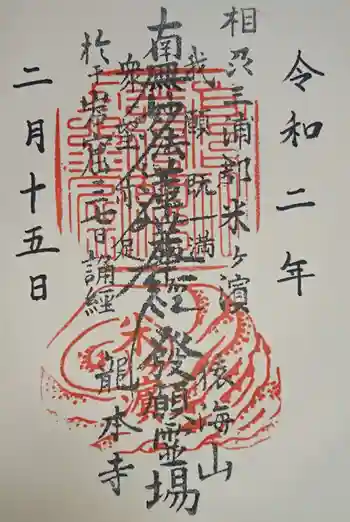 令和二年
相州三浦郡米ヶ濱
猿海山
我願既一満
南無妙法蓮華経発願霊場
衆望亦足
於于巖窟三七日誦経
龍本寺
二月十五日